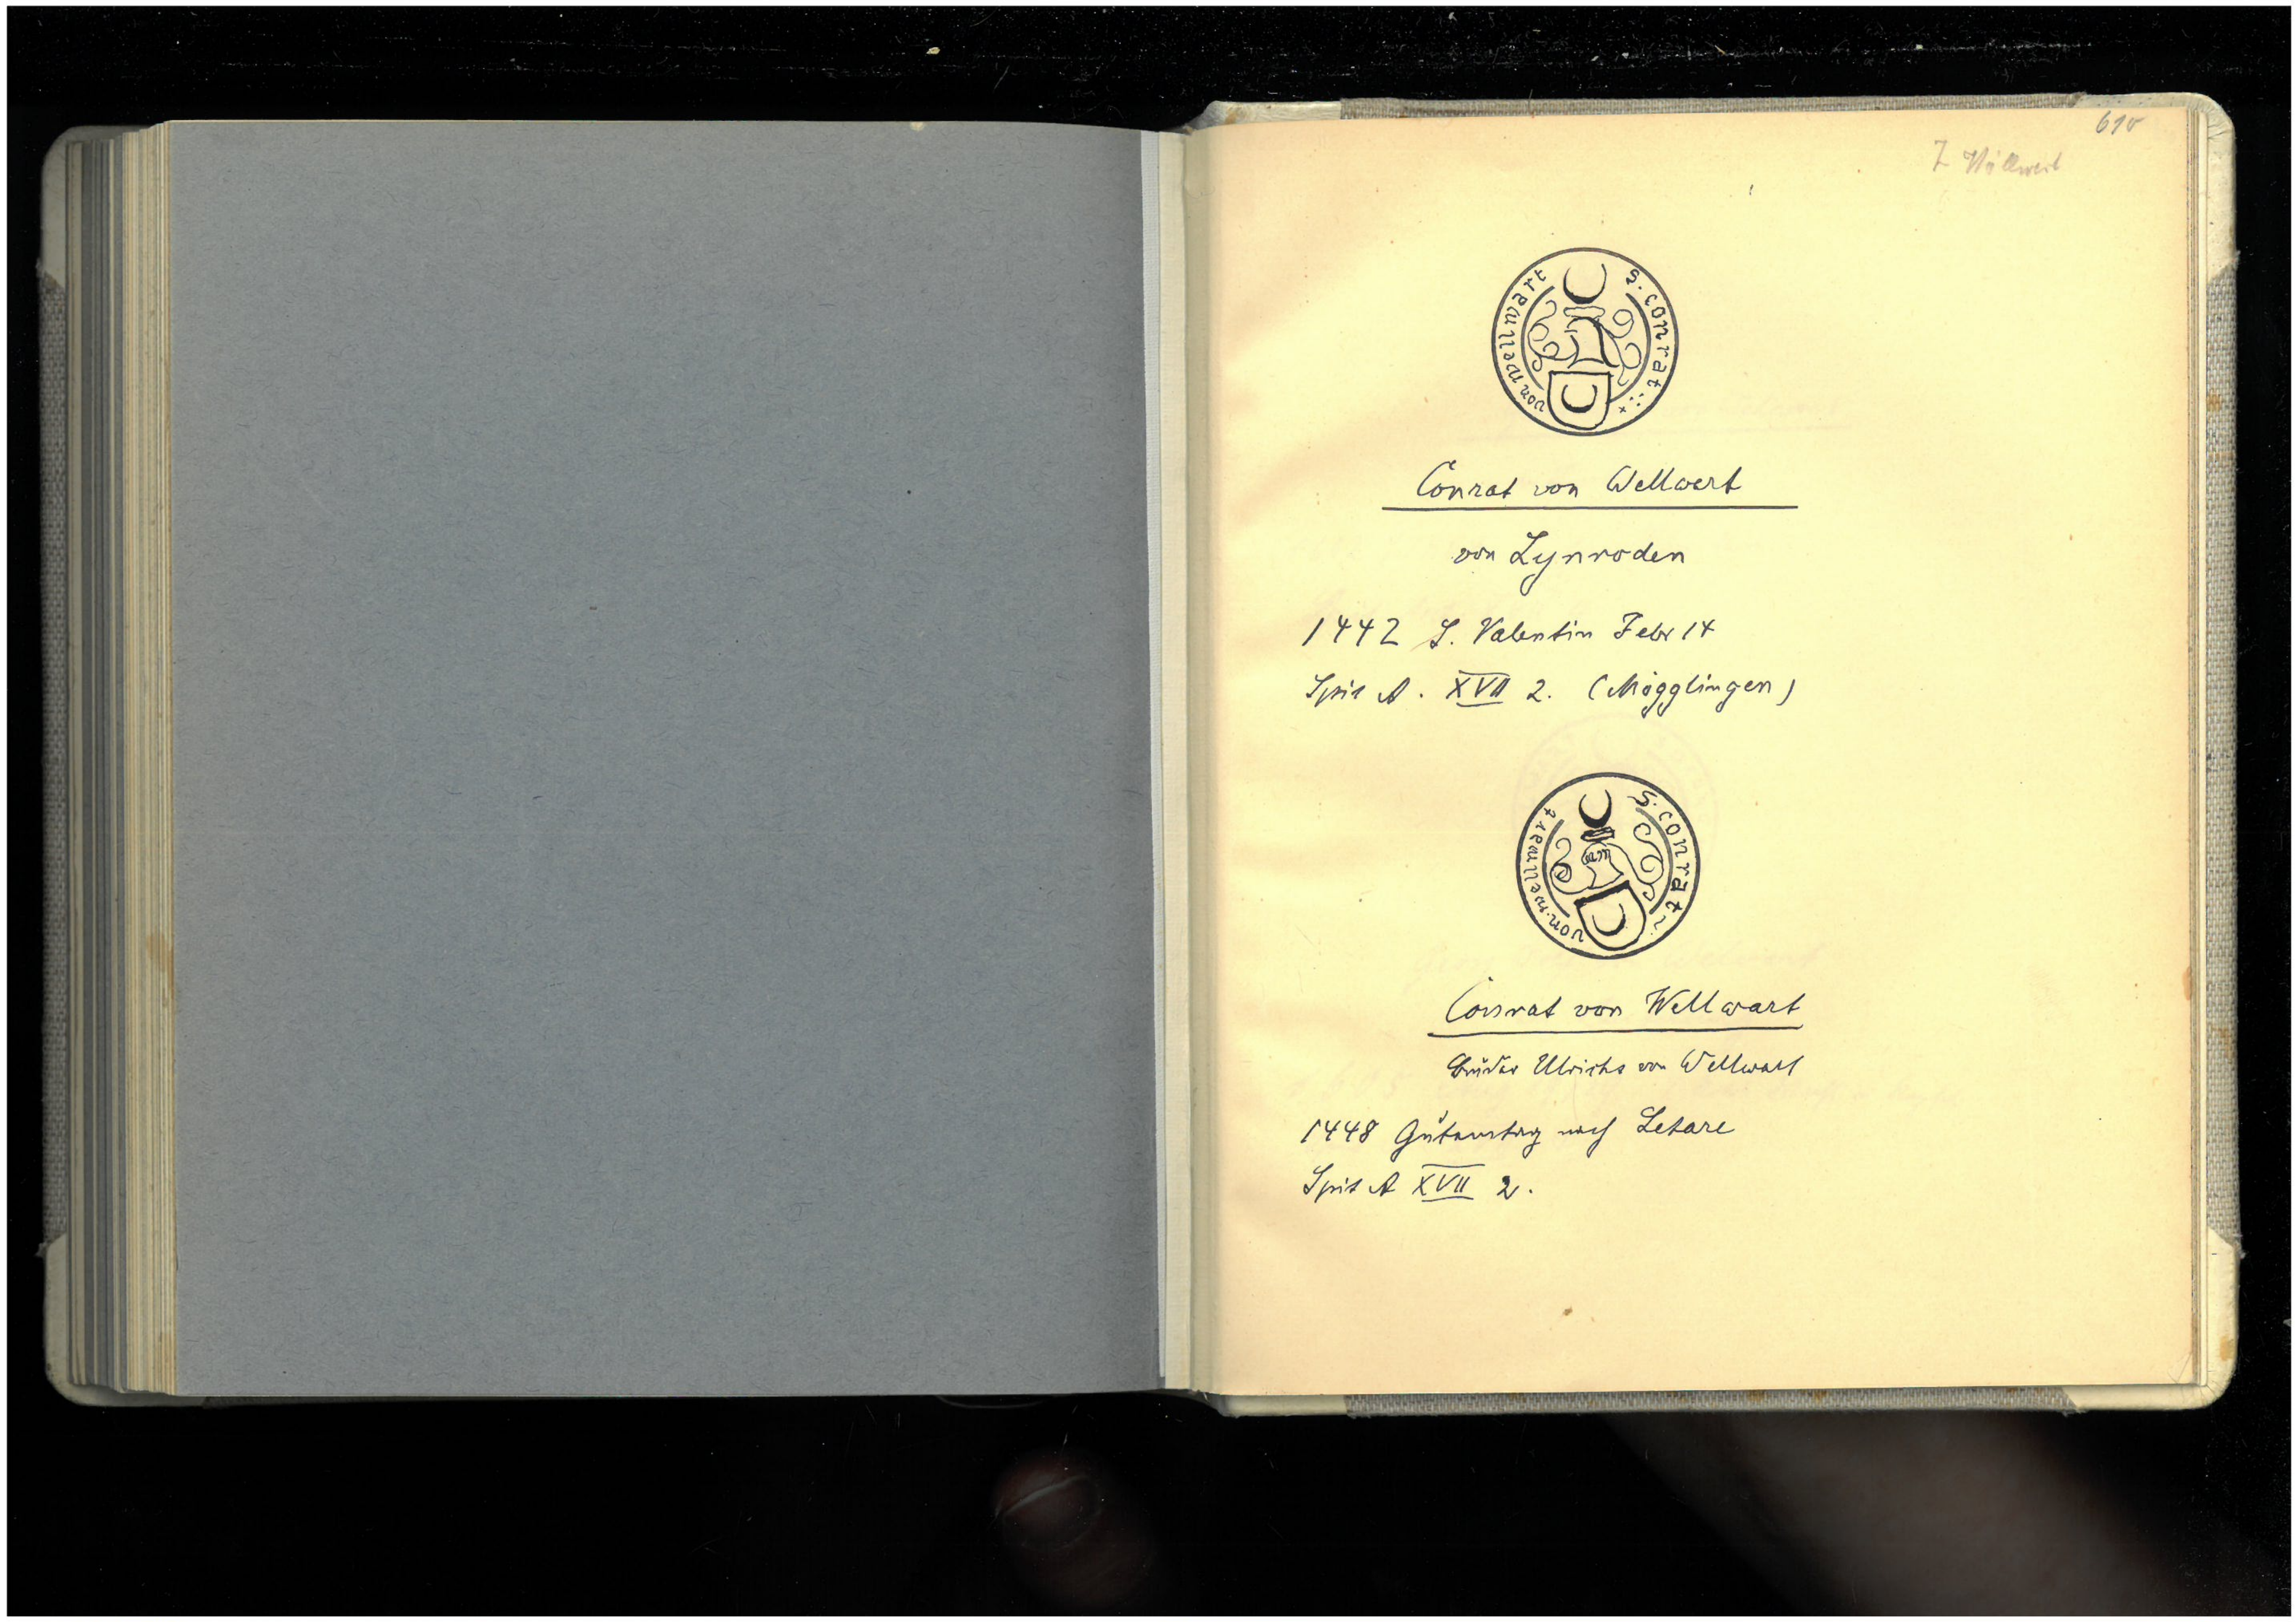 610
Z Wöllwert
S. conrat
von wellwart
Conrat von Wellwert
von Lynroden
1442 S. Valentin Febr 14
Spit A. XVII 2. (Mögglingen)
S. conrat
von wellwart
Conrat von Wellwart
Bruder Ulrichs von Wellwart
1448 Gutemtag nach Letare
Spit A XVII 2.